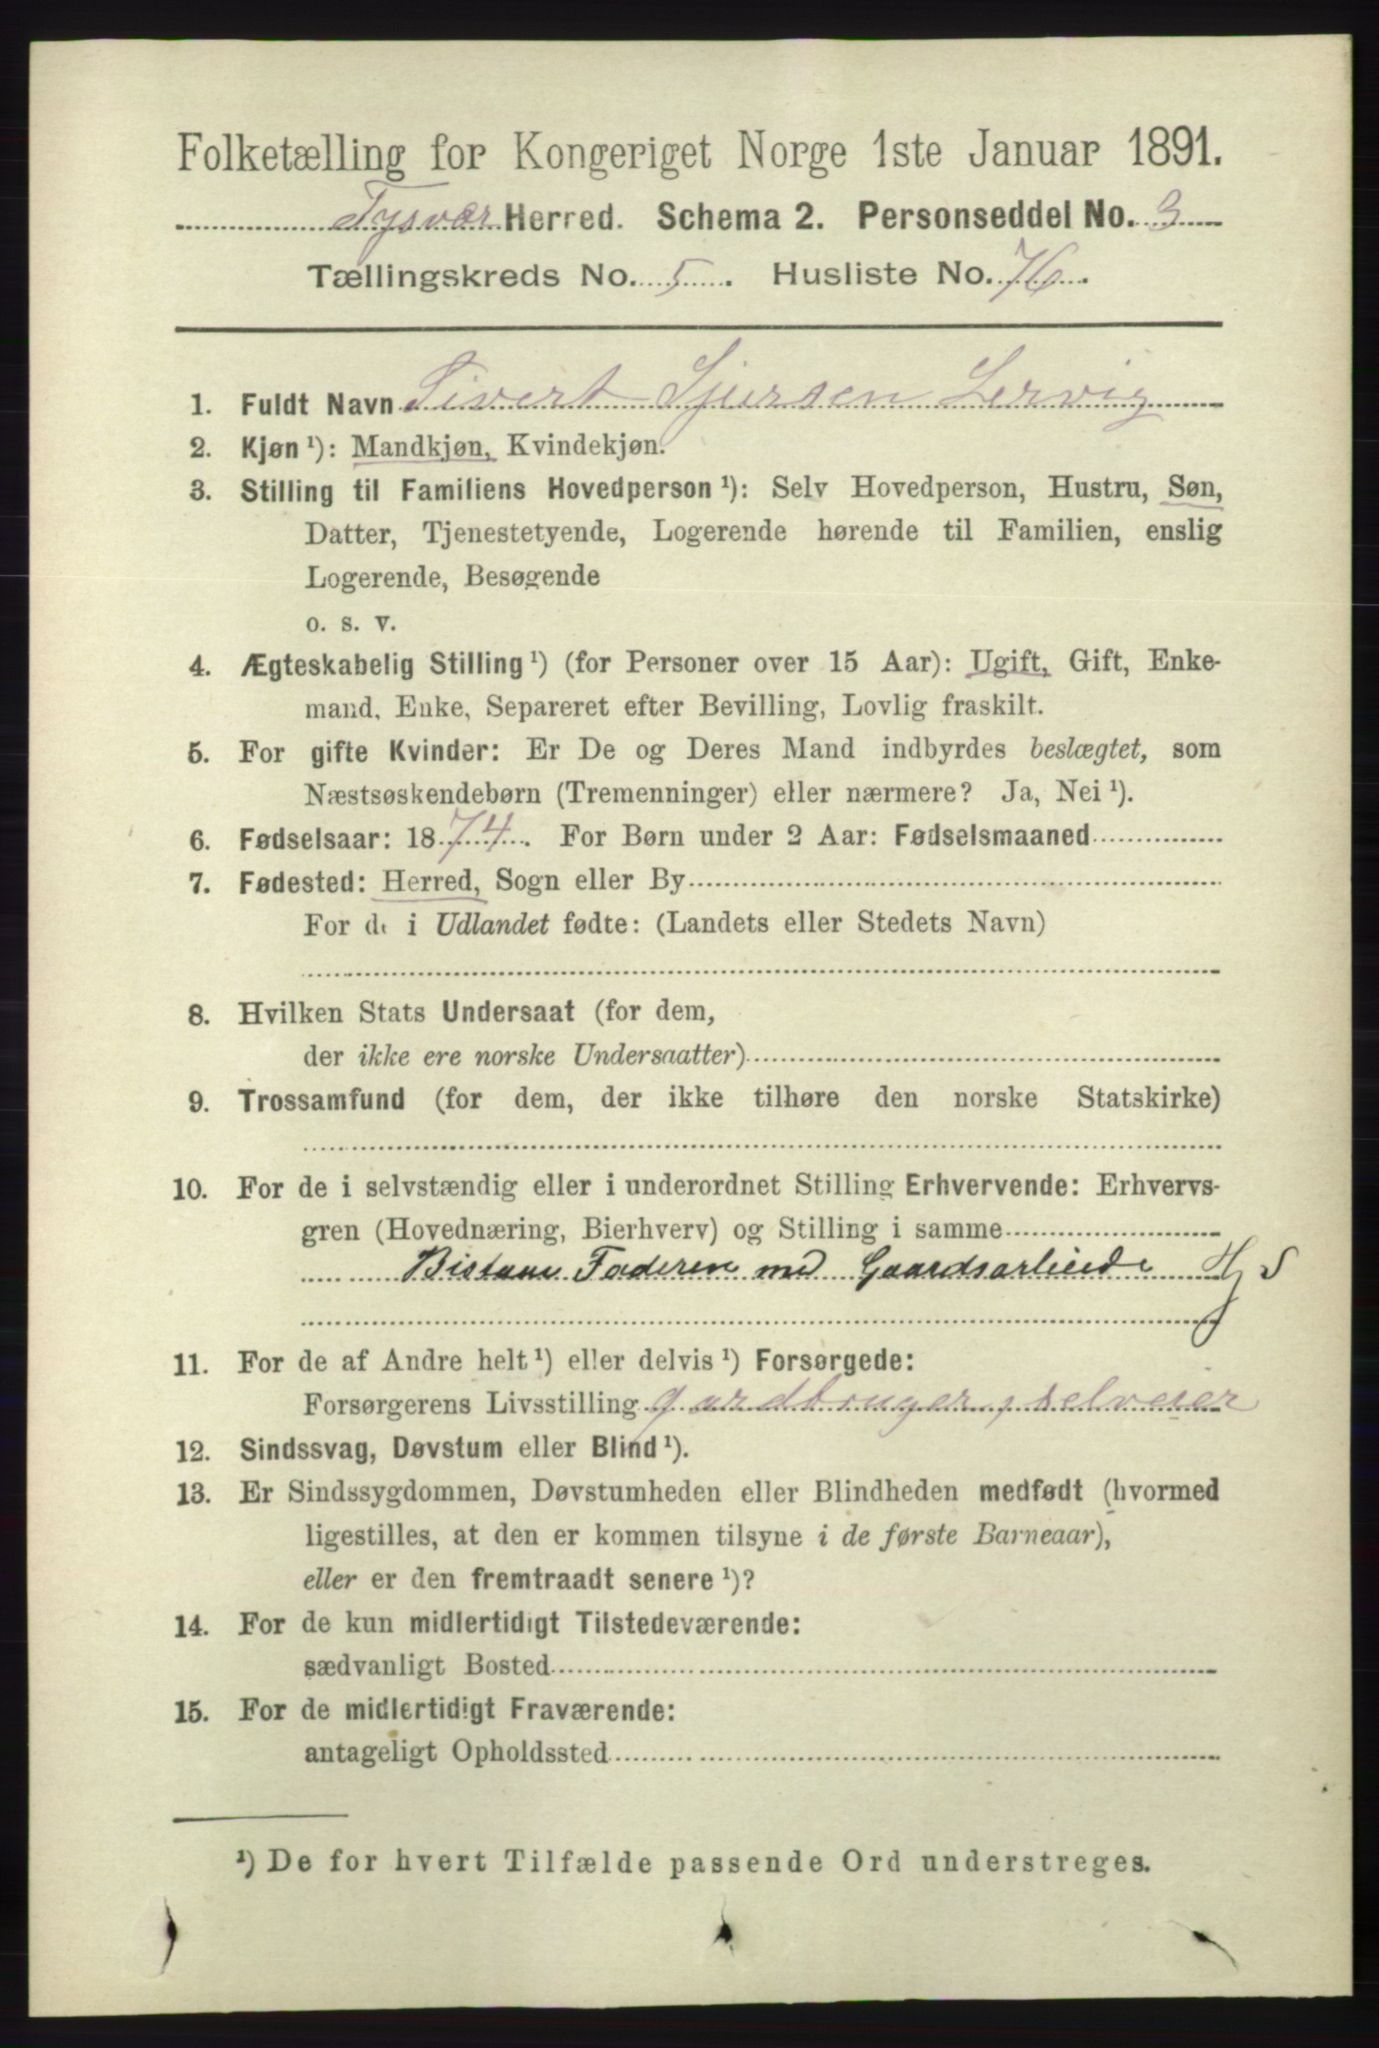 Folketælling for Kongeriget Norge 1ste Januar 1891.
Tysvær Herred. Schema 2. Personseddel No. 3
Tællingskreds No. 5. Husliste No. 76.
1. Fuldt Navn Sivert Sjursen Lervig
2. Kjøn¹): Mandkjøn, Kvindekjøn.
3. Stilling til Familiens Hovedperson¹): Selv Hovedperson, Hustru, Søn,
Datter, Tjenestetyende, Logerende hørende til Familien, enslig
Logerende, Besøgende
o. s. v.
4. Ægteskabelig Stilling¹) (for Personer over 15 Aar): Ugift, Gift, Enke-
mand, Enke, Separeret efter Bevilling, Lovlig fraskilt.
5. For gifte Kvinder: Er De og Deres Mand indbyrdes beslægtet, som
Næstsøskendebørn (Tremenninger) eller nærmere? Ja, Nei¹).
6. Fødselsaar: 1874. For Børn under 2 Aar: Fødselsmaaned
7. Fødested: Herred, Sogn eller By
For de i Udlandet fødte: (Landets eller Stedets Navn)
8. Hvilken Stats Undersaat (for dem,
der ikke ere norske Undersaatter)
9. Trossamfund (for dem, der ikke tilhøre den norske Statskirke)
10. For de i selvstændig eller i underordnet Stilling Erhvervende: Erhvervs-
gren (Hovednæring, Bierhverv) og Stilling i samme
Bistaar Faderen med Gaardsarbeide
11. For de af Andre helt¹) eller delvis¹) Forsørgede:
Forsørgerens Livsstilling gardbruger, selveier
12. Sindssvag, Døvstum eller Blind¹).
13. Er Sindssygdommen, Døvstumheden eller Blindheden medfødt (hvormed
ligestilles, at den er kommen tilsyne i de første Barneaar),
eller er den fremtraadt senere¹)?
14. For de kun midlertidigt Tilstedeværende:
sædvanligt Bosted
15. For de midlertidigt Fraværende:
antageligt Opholdssted
¹) De for hvert Tilfælde passende Ord understreges.